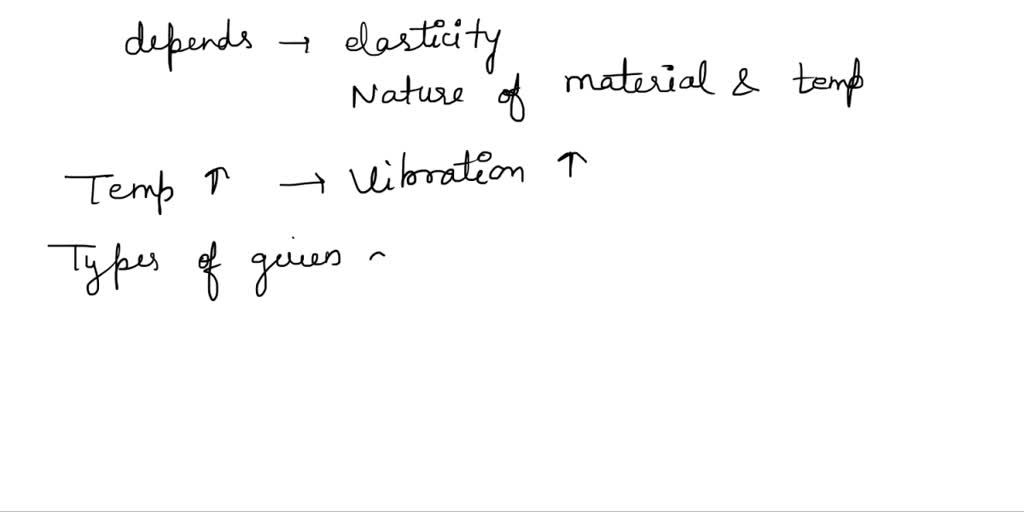 depends → elasticity
Nature of material & temp
Temp ↑ → Vibration ↑
Types of